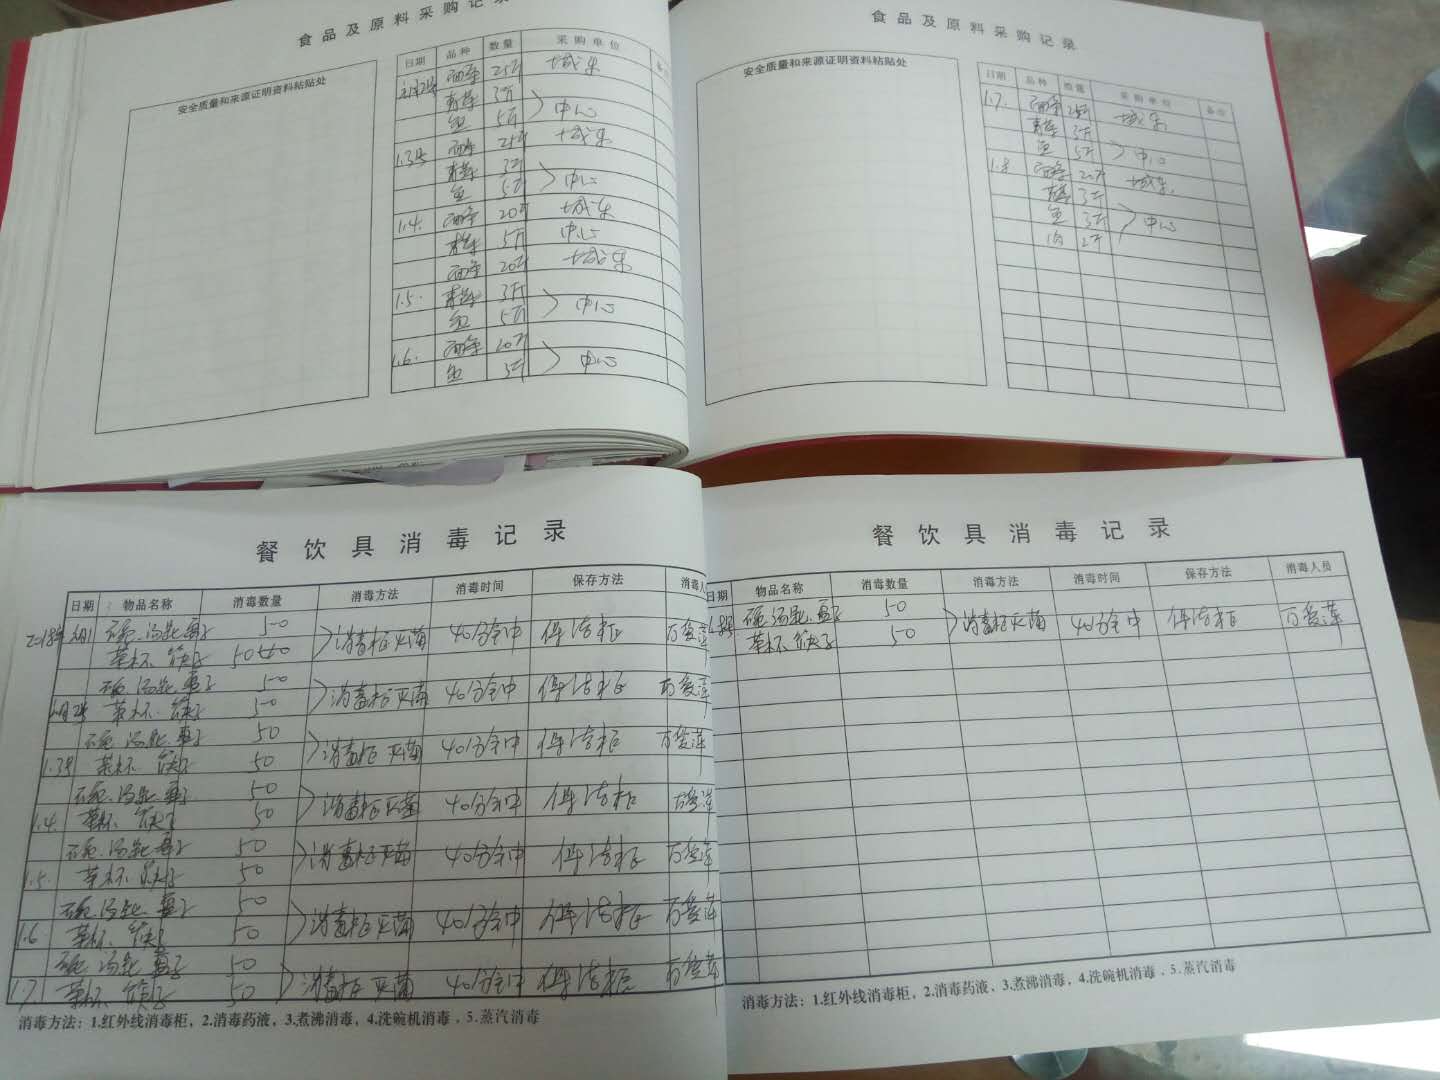 食品及原料采购记录
安全质量和来源证明资料粘贴处
日期 品种 数量 采购单位
25斤 城东
青菜 3斤
鱼 5斤 中心
1.3号 25斤 城东
青菜 3斤
鱼 5斤 中心
1.4. 20斤 城东
青菜 5斤 中心
20斤 城东
1.5. 青菜 3斤
鱼 5斤 中心
1.6. 20斤
鱼 3斤 中心
食品及原料采购记录
安全质量和来源证明资料粘贴处
日期 品种 数量 采购单位 备注
1.7. 城东
青菜 3斤
鱼 5斤 中心
1.8 20斤 城东
青菜 3斤
鱼 3斤 中心
2斤
餐饮具消毒记录
日期 物品名称 消毒数量 消毒方法 消毒时间 保存方法 消毒人
2018年 碗.汤匙. 50 消毒柜灭菌 40分钟 保洁柜
茶杯 筷子 50
碗.汤匙. 50 消毒柜灭菌 40分钟 保洁柜
茶杯 筷子 50
碗.汤匙. 50 消毒柜灭菌 40分钟 保洁柜
1.3号 茶杯 筷子 50
碗.汤匙. 50 消毒柜灭菌 40分钟 保洁柜
1.4. 茶杯 筷子 50
碗.汤匙. 50 消毒柜灭菌 40分钟 保洁柜
1.5. 茶杯 筷子 50
碗.汤匙. 50 消毒柜灭菌 40分钟 保洁柜
1.6 茶杯 筷子 50
碗.汤匙. 50 消毒柜灭菌 40分钟 保洁柜
1.7 茶杯 筷子 50
消毒方法：1.红外线消毒柜，2.消毒药液，3.煮沸消毒，4.洗碗机消毒，5.蒸汽消毒
餐饮具消毒记录
日期 物品名称 消毒数量 消毒方法 消毒时间 保存方法 消毒人员
碗.汤匙. 50 消毒柜灭菌 40分钟 保洁柜
茶杯 筷子 50
消毒方法：1.红外线消毒柜，2.消毒药液、3.煮沸消毒，4.洗碗机消毒，5.蒸汽消毒